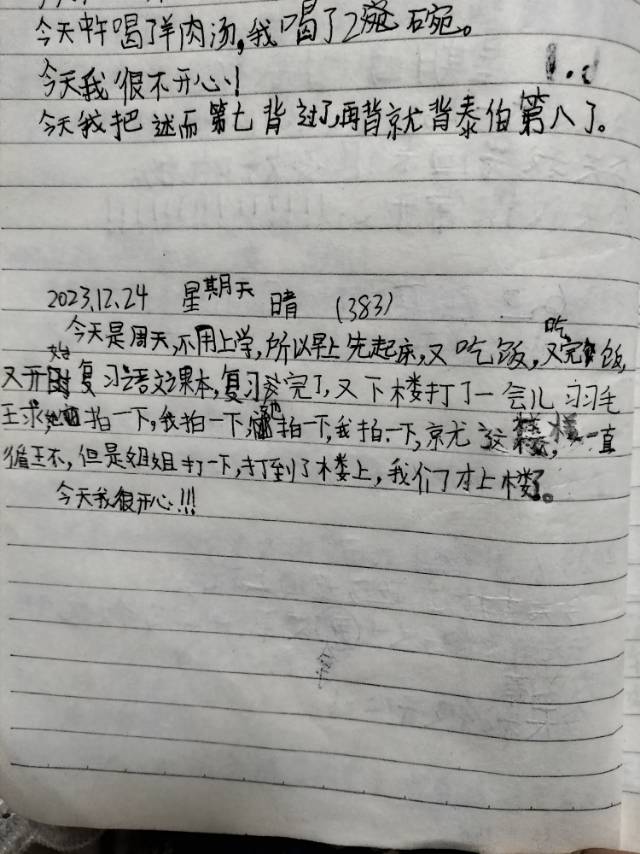 今天中午喝了羊肉汤,我喝了2碗。
今天我很不开心!
今天我把述而第七背过了,再背就背泰伯第八了。
2023.12.24 星期天 晴 (383)
今天是周天,不用上学,所以早上先起床,又吃饭,吃完饭,
又开始复习语文课本,复习完了,又下楼打了一会儿羽毛
球,她拍一下,我拍一下,她拍一下,我拍一下,就这样,一直
循环,但是姐姐打一下,打到了楼上,我们才上楼了。
今天我很开心!!!